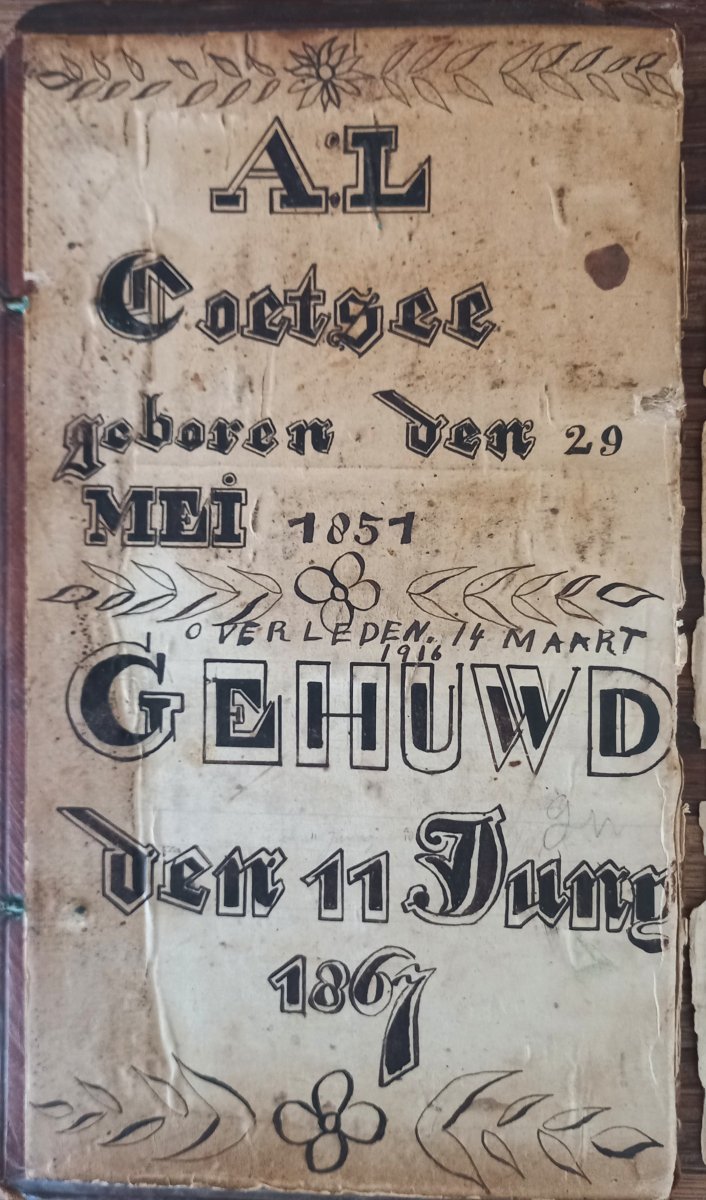 A.L
Coetsee
geboren den 29
MEI 1851
OVERLEDEN. 14 MAART
1916
GEHUWD
den 11 Juny
1867